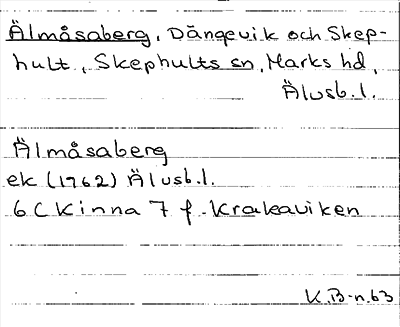 Älmåsaberg, Dängevik och Skep-
hult, Skephults sn, Marks hd,
Älvsb.l.
Älmåsaberg
ek (1762) Älvsb.l.
6C Kinna 7 f. Krakaviken
K.B-n.63